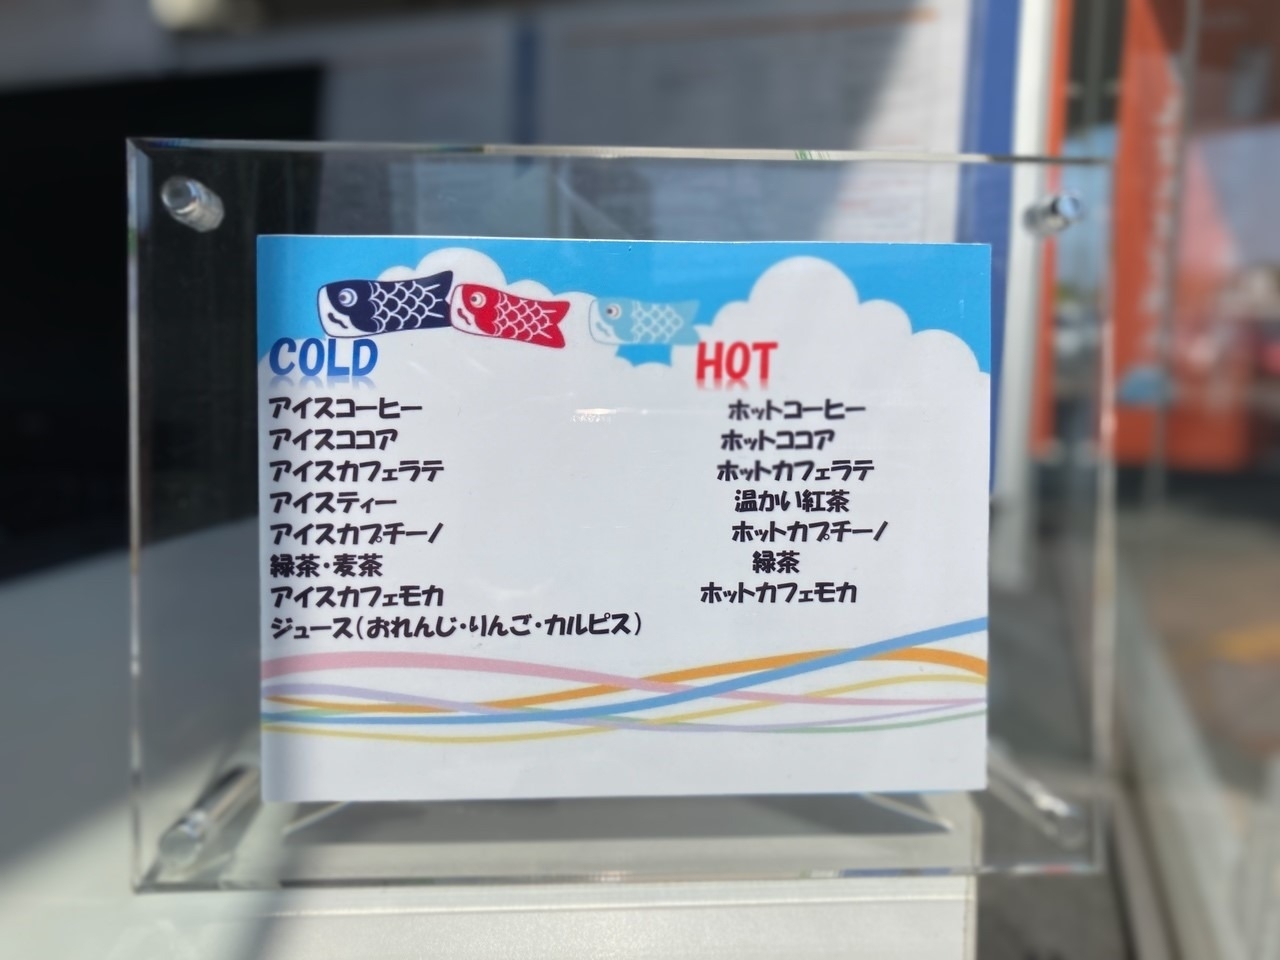 COLD
アイスコーヒー
アイスココア
アイスカフェラテ
アイスティー
アイスカプチーノ
緑茶・麦茶
アイスカフェモカ
ジュース(おれんじ・りんご・カルピス)
HOT
ホットコーヒー
ホットココア
ホットカフェラテ
温かい紅茶
ホットカプチーノ
緑茶
ホットカフェモカ